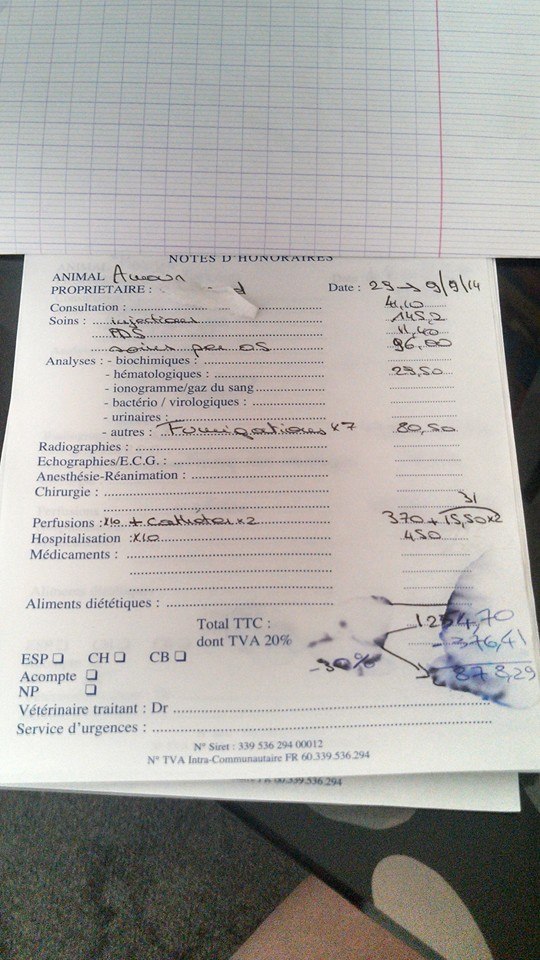 NOTES D'HONORAIRES
ANIMAL Amour
PROPRIETAIRE : Date : 29 → 9/9/14
Consultation : 41,10
Soins : injections 145,2
11,40
soins per os 96,00
Analyses : - biochimiques :
- hématologiques : 29,50
- ionogramme/gaz du sang
- bactério / virologiques :
- urinaires :
- autres : Fumigations x7 80,50
Radiographies :
Echographies/E.C.G. :
Anesthésie-Réanimation :
Chirurgie :
31
Perfusions : x10 + Catheter x2 370 + 15,50x2
Hospitalisation : x10 450
Médicaments :
Aliments diététiques :
Total TTC : 1254,70
dont TVA 20% - 376,41
ESP CH CB -30% 878,29
Acompte
NP
Vétérinaire traitant : Dr
Service d'urgences :
N° Siret : 339 536 294 00012
N° TVA Intra-Communautaire FR 60.339.536.294
60.339.536.294